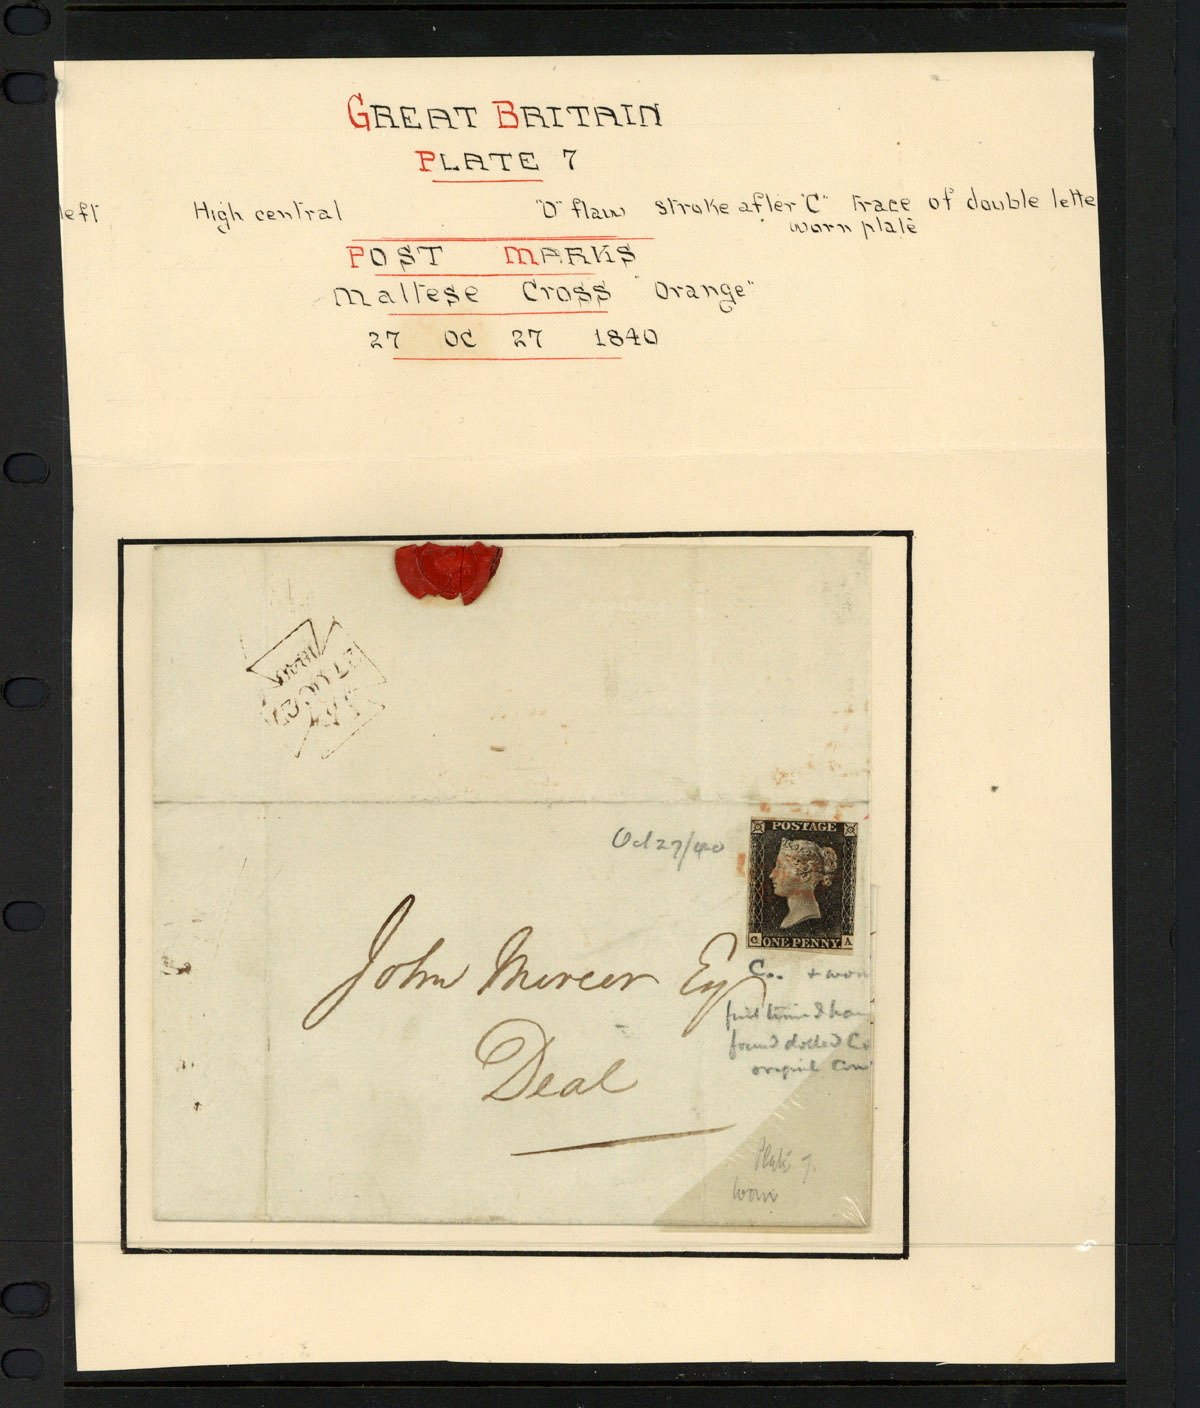 GREAT BRITAIN
PLATE 7
left High central "O" flaw stroke after "C" trace of double lette
worn plate
POST MARKS
Maltese Cross "Orange"
27 OC 27 1840
Oct 27/40
POSTAGE
C ONE PENNY A
John Mercer Esq
Deal
+ wor
found dotted
Plate 7
worn